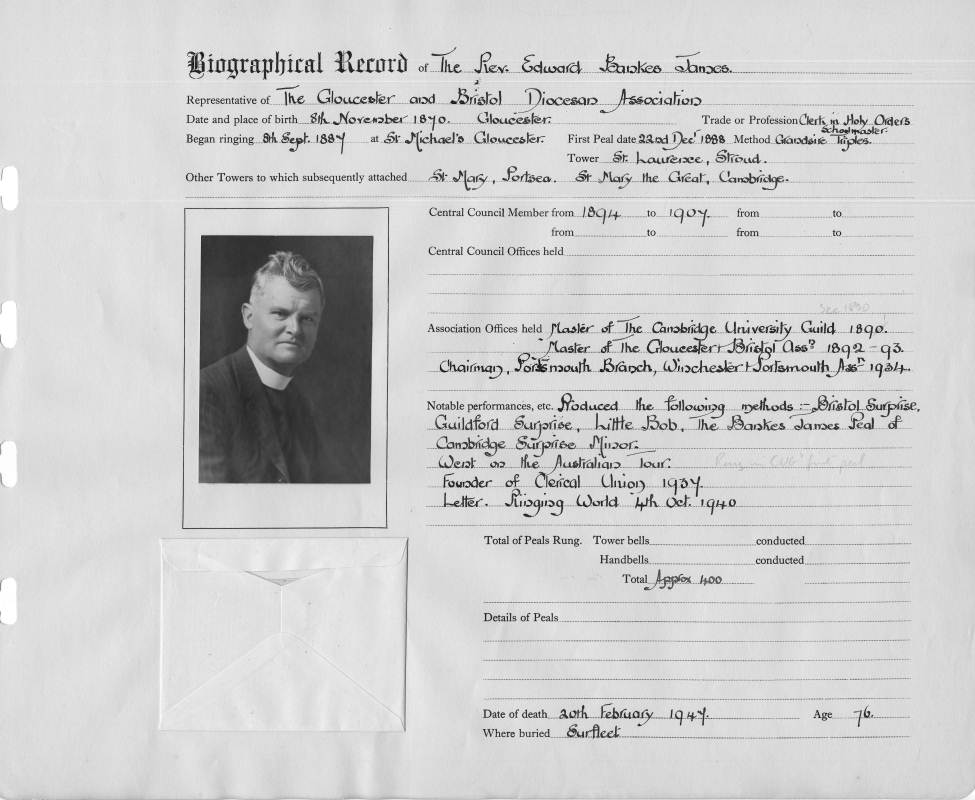 Biographical Record of The Rev. Edward Bankes James.
Representative of The Gloucester and Bristol Diocesan Association
Date and place of birth 8th November 1870. Gloucester. Trade or Profession Clerk in Holy Orders
Schoolmaster.
Began ringing 8th Sept. 1887 at St Michael's Gloucester. First Peal date 22nd Decr 1888 Method Grandsire Triples.
Tower St. Laurence, Stroud.
Other Towers to which subsequently attached St Mary, Portsea. St Mary the Great, Cambridge.
Central Council Member from 1894 to 1907. from to
from to from to
Central Council Offices held
See 1890
Association Offices held Master of The Cambridge University Guild 1890.
Master of The Gloucester & Bristol Assn 1892-93.
Chairman, Portsmouth Branch, Winchester & Portsmouth Assn 1934.
Notable performances, etc. Produced the following methods :- Bristol Surprise,
Guildford Surprise, Little Bob, The Bankes James Peal of
Cambridge Surprise Minor.
Went on the Australian Tour. Rang in CUG's first peal
Founder of Clerical Union 1937.
Letter. Ringing World 4th Oct. 1940
Total of Peals Rung. Tower bells conducted
Handbells conducted
Total Approx 400
Details of Peals
Date of death 20th February 1947. Age 76.
Where buried Surfleet